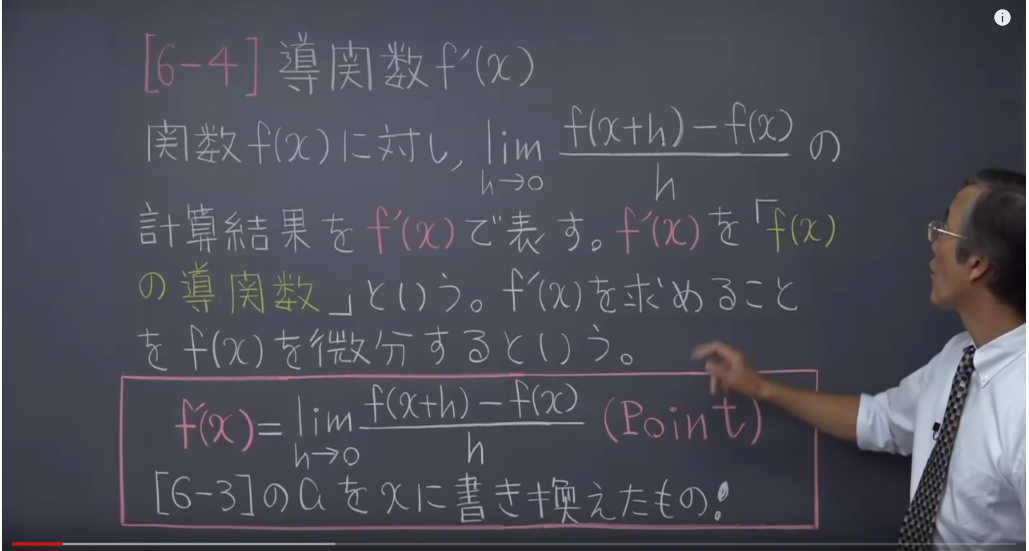 [6-4] 導関数 f'(x)
関数 f(x) に対し, lim_{h→0} (f(x+h)-f(x))/h の
計算結果を f'(x) で表す。f'(x) を「f(x)
の導関数」という。f'(x) を求めること
を f(x) を微分するという。
f'(x) = lim_{h→0} (f(x+h)-f(x))/h (Point)
[6-3]の a を x に書き換えたもの!